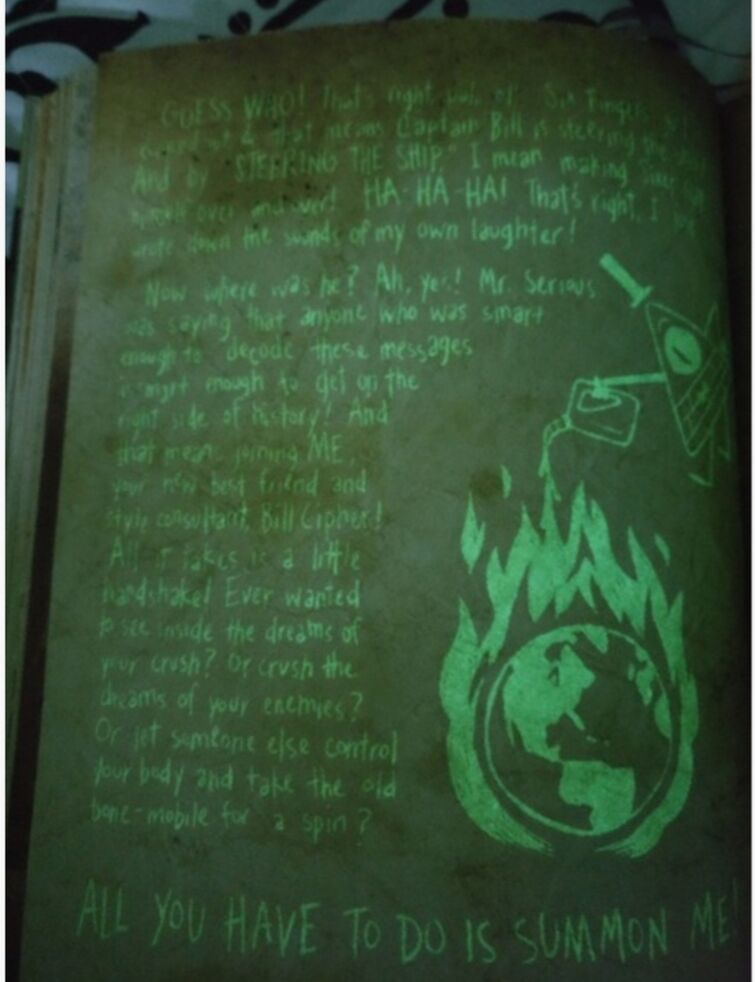 GUESS WHO! That's right, ol' Six Fingers
& that means Captain Bill is steering the ship!
And by "STEERING THE SHIP," I mean making
over and over! HA-HA-HA! That's right, I
wrote down the sounds of my own laughter!
Now where was he? Ah, yes! Mr. Serious
was saying that anyone who was smart
enough to decode these messages
is smart enough to get on the
right side of history! And
that means joining ME,
your new best friend and
style consultant, Bill Cipher!
All it takes is a little
handshake! Ever wanted
to see inside the dreams of
your crush? Or crush the
dreams of your enemies?
Or let someone else control
your body and take the old
bone-mobile for a spin?
ALL YOU HAVE TO DO IS SUMMON ME!